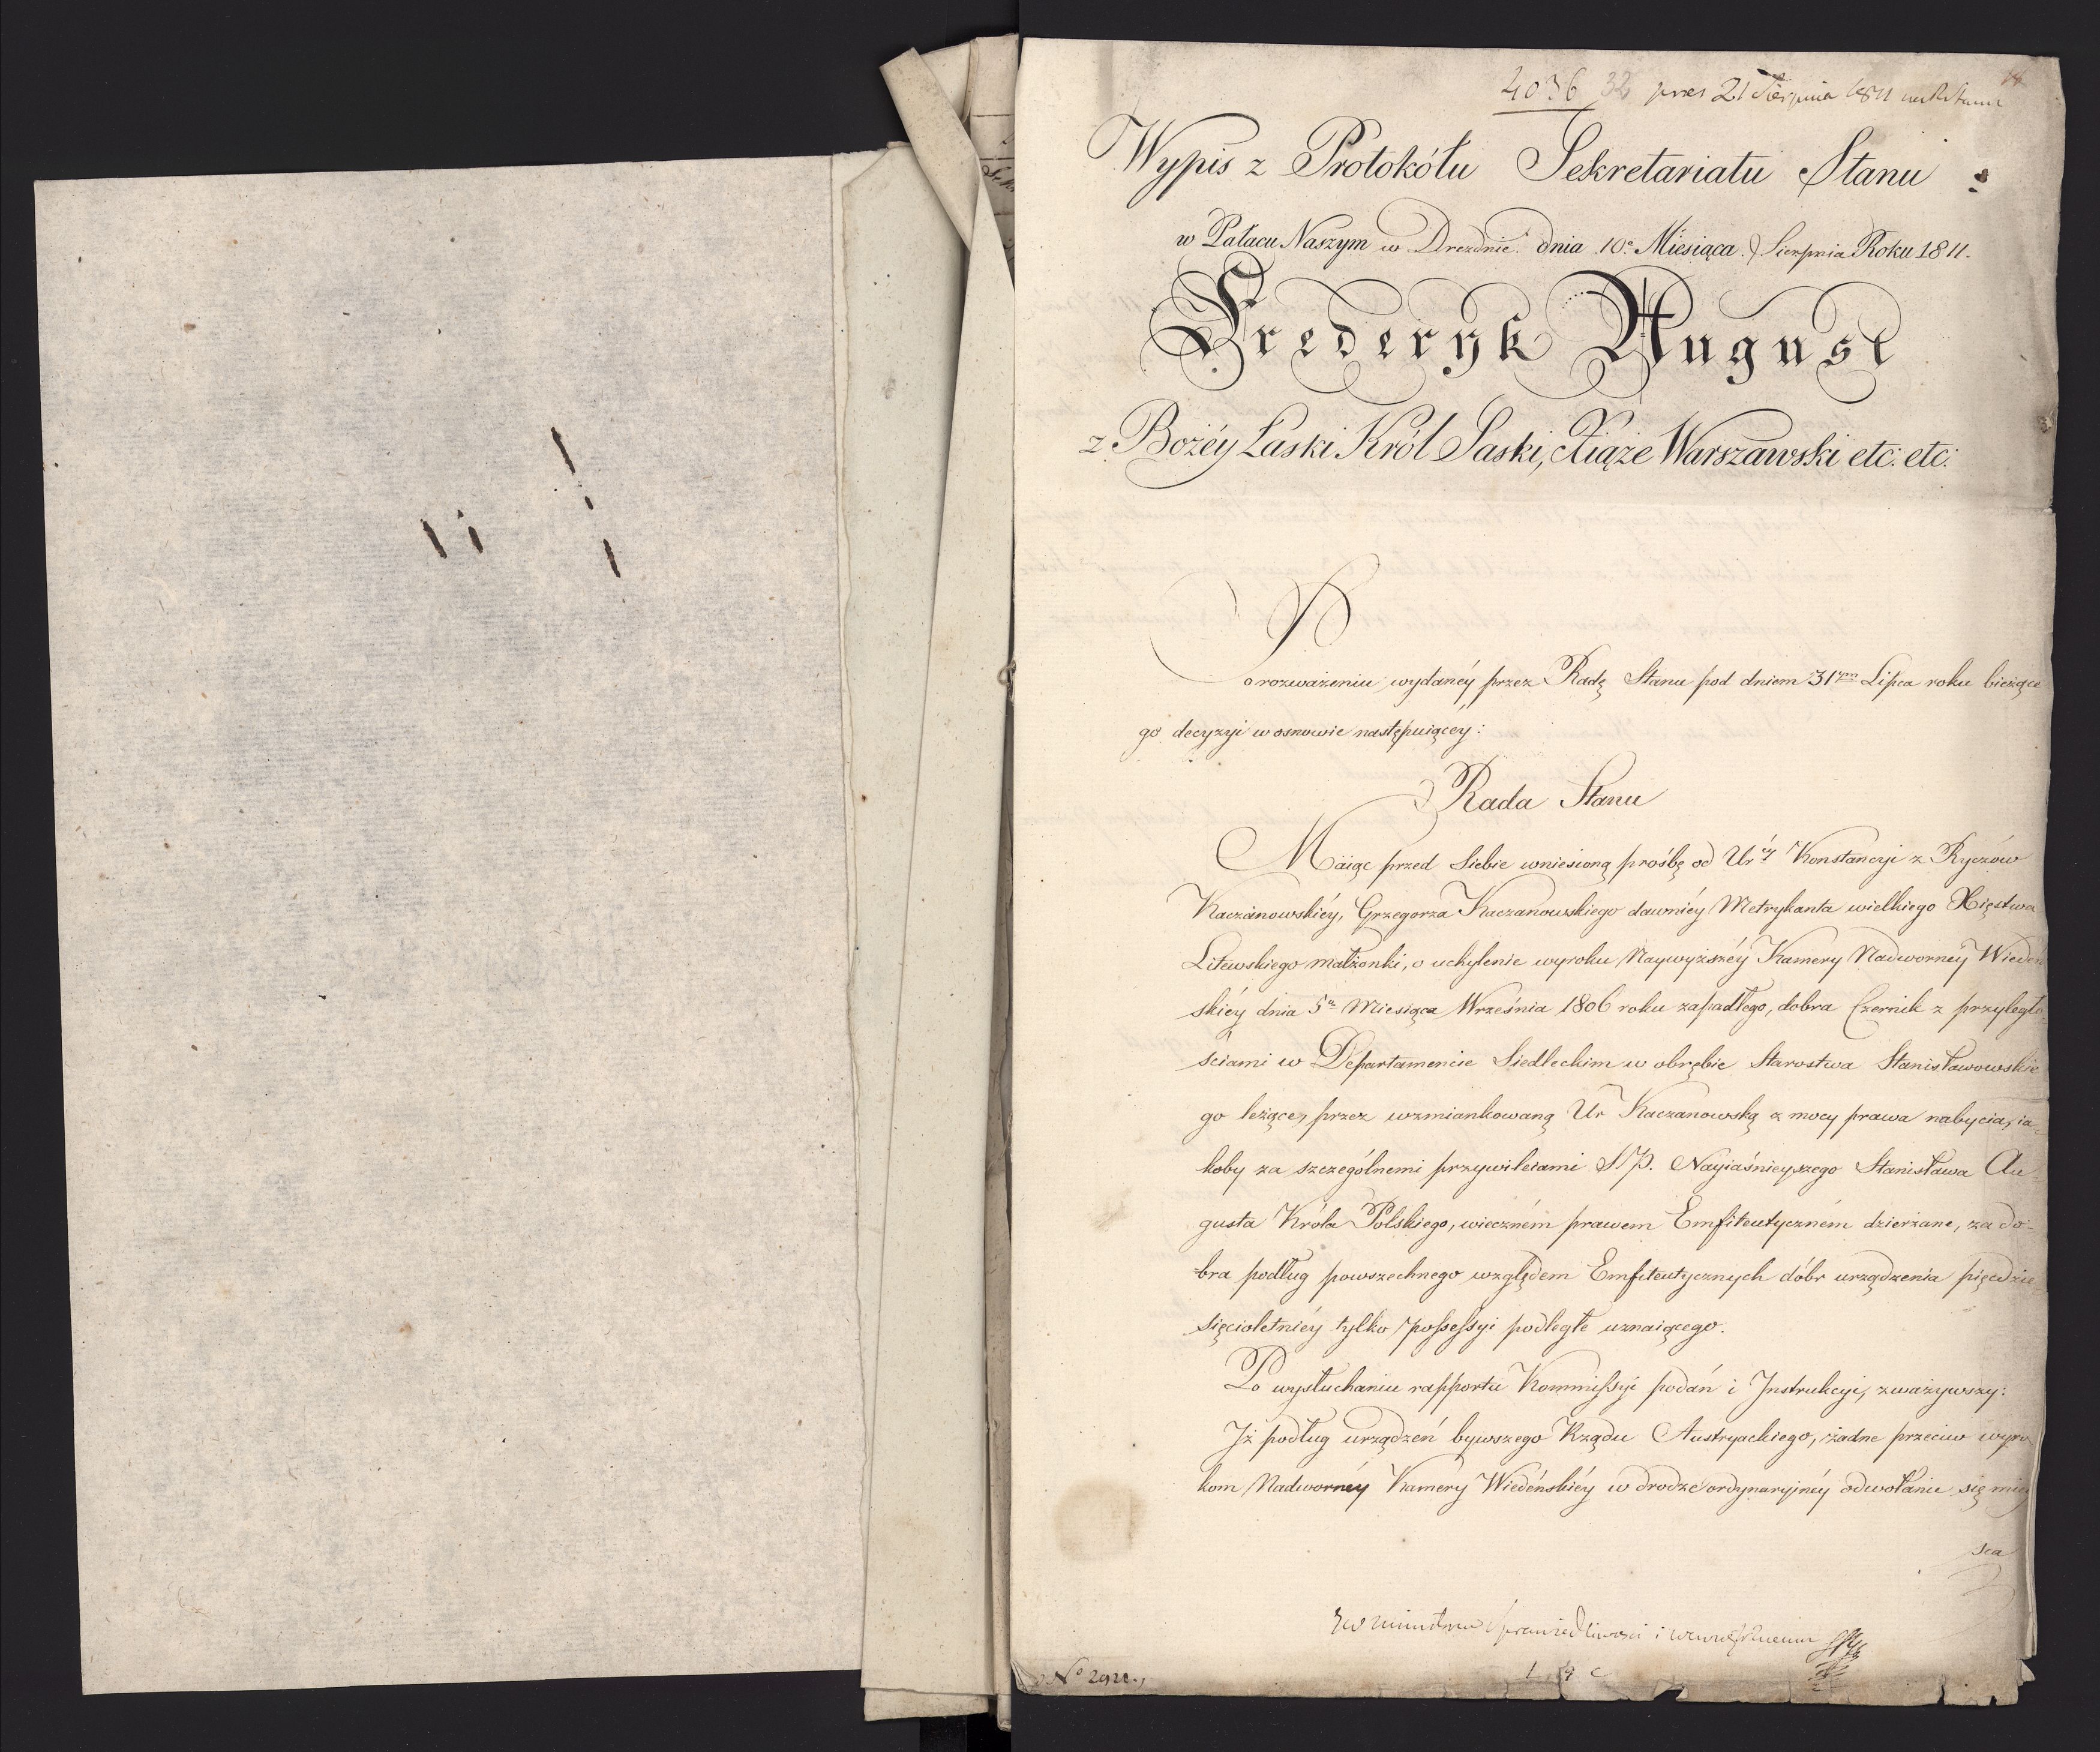 4036 32 pres 21 Sierpnia 1811
Wypis z Protokółu Sekretariatu Stanu
w Pałacu Naszym w Dreznie. dnia 10º Miesiąca. Sierpnia Roku 1811.
Fryderyk August
z Bożéy Łaski Król Saski, Xiąże Warszawski etc: etc:
Po rozważeniu wydanéy przez Radę Stanu pod dniem 31ym Lipca roku bieżące
go decyzyi w osnowie następuiącéy:
Rada Stanu
Maiąc przed Siebie wniesioną prośbę od Uréy Konstancyi z Ryczów
Kaczanowskiéy, Grzegorza Kaczanowskiego dawniéy Metrykanta wielkiego Xięstwa
Litewskiego małżonki, o uchylenie wyroku Naywyższéy Kamery Nadwornéy Wiedeń
skiéy dnia 5º Miesiąca Września 1806 roku zapadłego, dobra Czernik z przyległo
ściami w Departamencie Siedleckim w obrębie Starostwa Stanisławowskie
go leżące, przez wzmiankowaną Ur Kaczanowską z mocy prawa nabycia, ia-
koby za szczególnemi przywileiami S. P. Nayiaśnieyszego Stanisława Au-
gusta Króla Polskiego, wieczném prawem Emfiteutyczném dzierżane, za do-
bra podług powszechnego względem Emfiteutycznych dóbr urządzenia pięćdzie
sięcioletniéy tylko possessyi podległe uznaiącego.
Po wysłuchaniu rapportu Kommissyi podań i Instrukcyi, zważywszy:
Iż podług urządzeń bywszego Rządu Austryackiego, żadne przeciw wyro
kom Nadwornéy Kaméry Wiedeńskiéy w drodze ordynaryjnéy odwołanie się miey
sca
Sprawiedliwości i
Nº 292